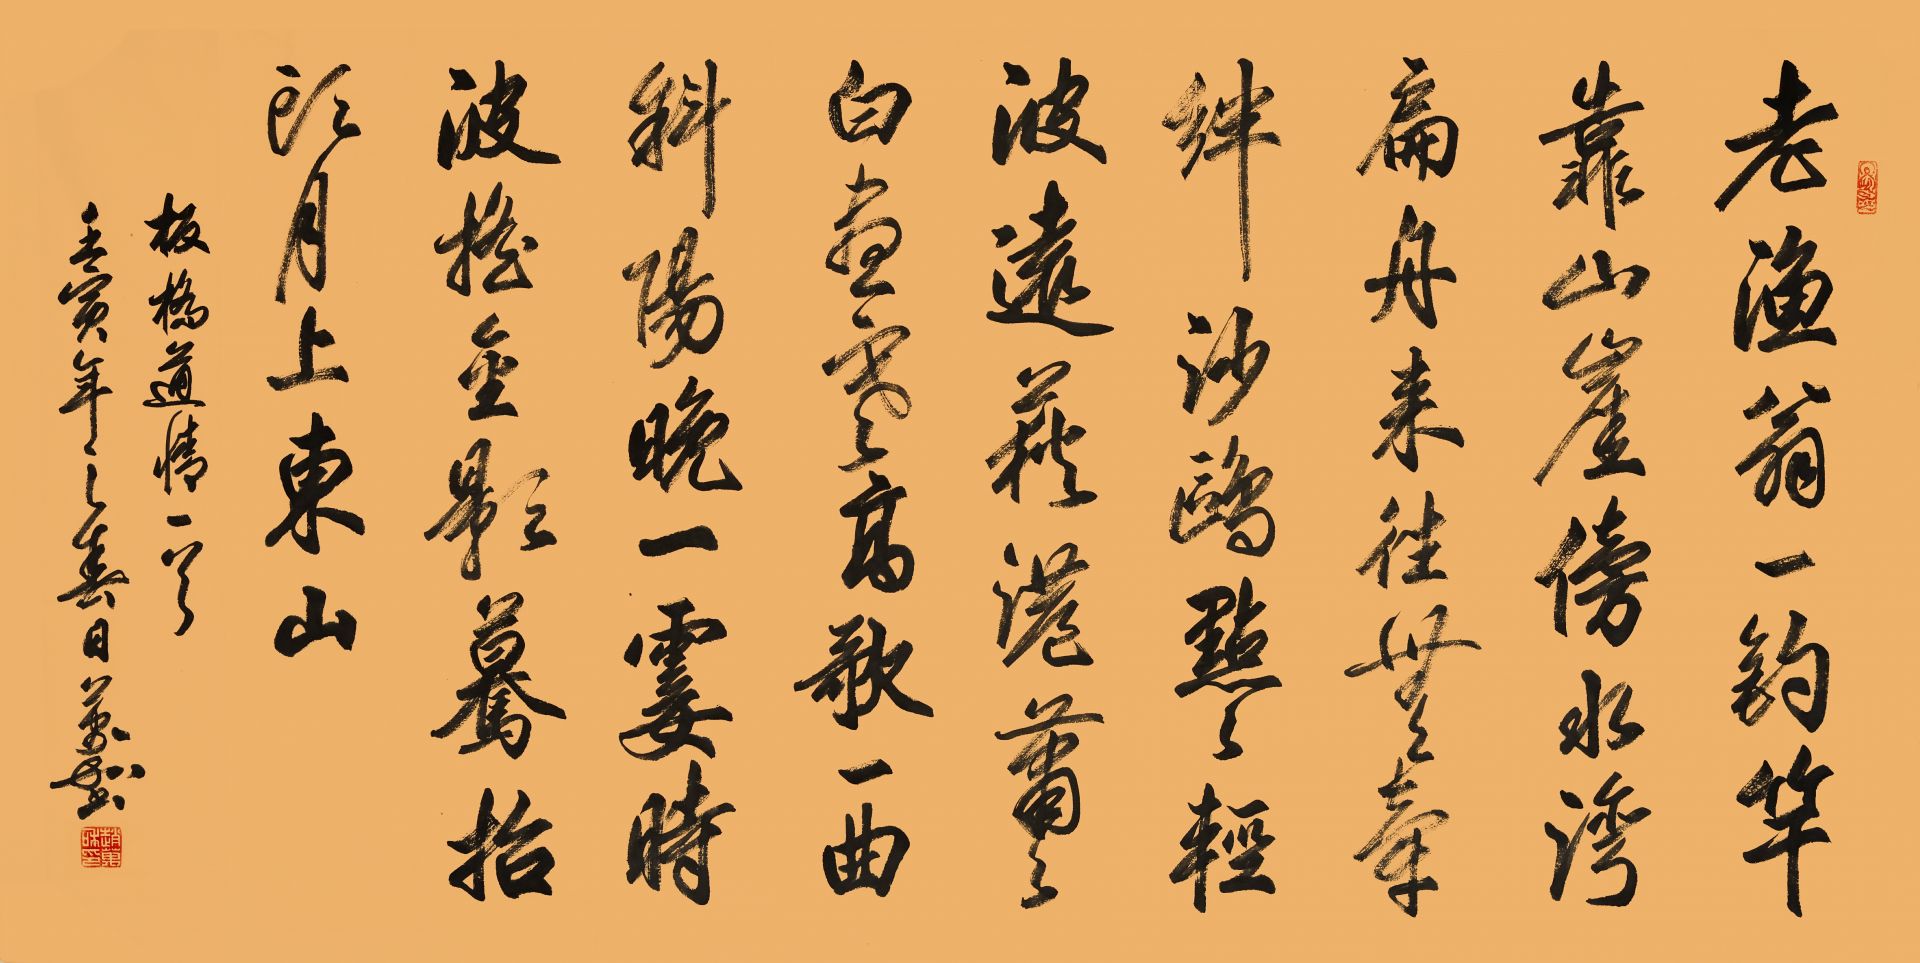 老渔翁一釣竿
靠山崖傍水灣
扁舟来往無牽
絆沙鷗點々輕
波遠荻港蕭々
白晝寒高歌一曲
斜陽晚一霎時
波摇金影驀抬
頭月上東山
板橋道情一首
壬寅年之春日